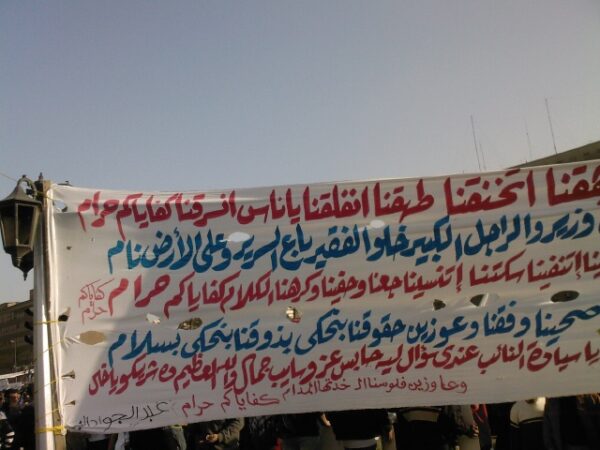 هقنا اتخنقنا طهقنا انفلقنا ياناس اتسرقنا كفاياكم حرام
وزير والراجل الكبير خلو الفقير باع السرير وعلى الأرض نام
ينا إتنفينا سكتنا إتنسينا جعنا وحفينا وكرهنا الكلام كفاياكم حرام
كفاياكم حرام
صحينا وفقنا وعوزين حقوقنا بنحكى بذوقنا بنحكى بسلام
يا سيادة النائب عندى سؤال ليه حابس عز وسايب جمال والله العظيم ده شريكو يا خال
وعاوزين فلوسنا الـ خدتها المدام كفاياكم حرام
عبد الجواد